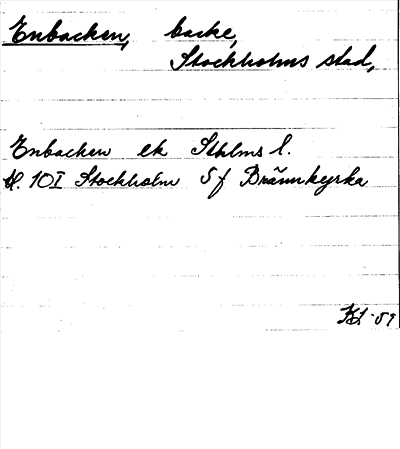 Enbacken, backe,
Stockholms stad,
Enbacken ek Sthlms l.
bl. 10I Stockholm 5f Brännkyrka